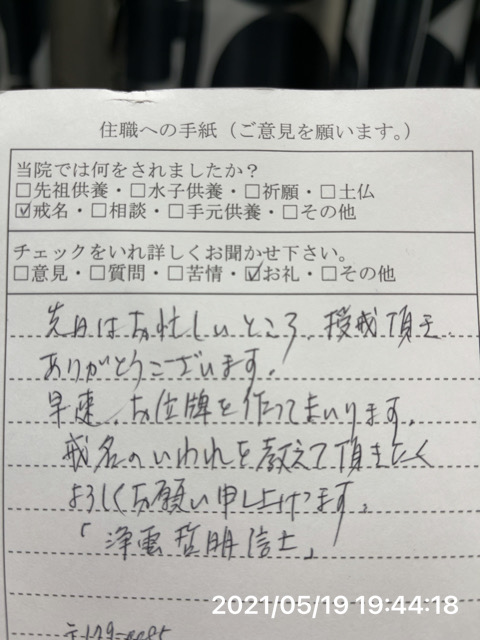 住職への手紙（ご意見を願います。）
当院では何をされましたか？
□先祖供養・□水子供養・□祈願・□土仏
☑戒名・□相談・□手元供養・□その他
チェックをいれ詳しくお聞かせ下さい。
□意見・□質問・□苦情・☑お礼・□その他
先日はお忙しいところ、授戒頂き
ありがとうございます。
早速、お位牌を作ってまいります。
戒名のいわれを教えて頂きたく
よろしくお願い申し上げます。
「浄雲哲明信士」
2021/05/19 19:44:18